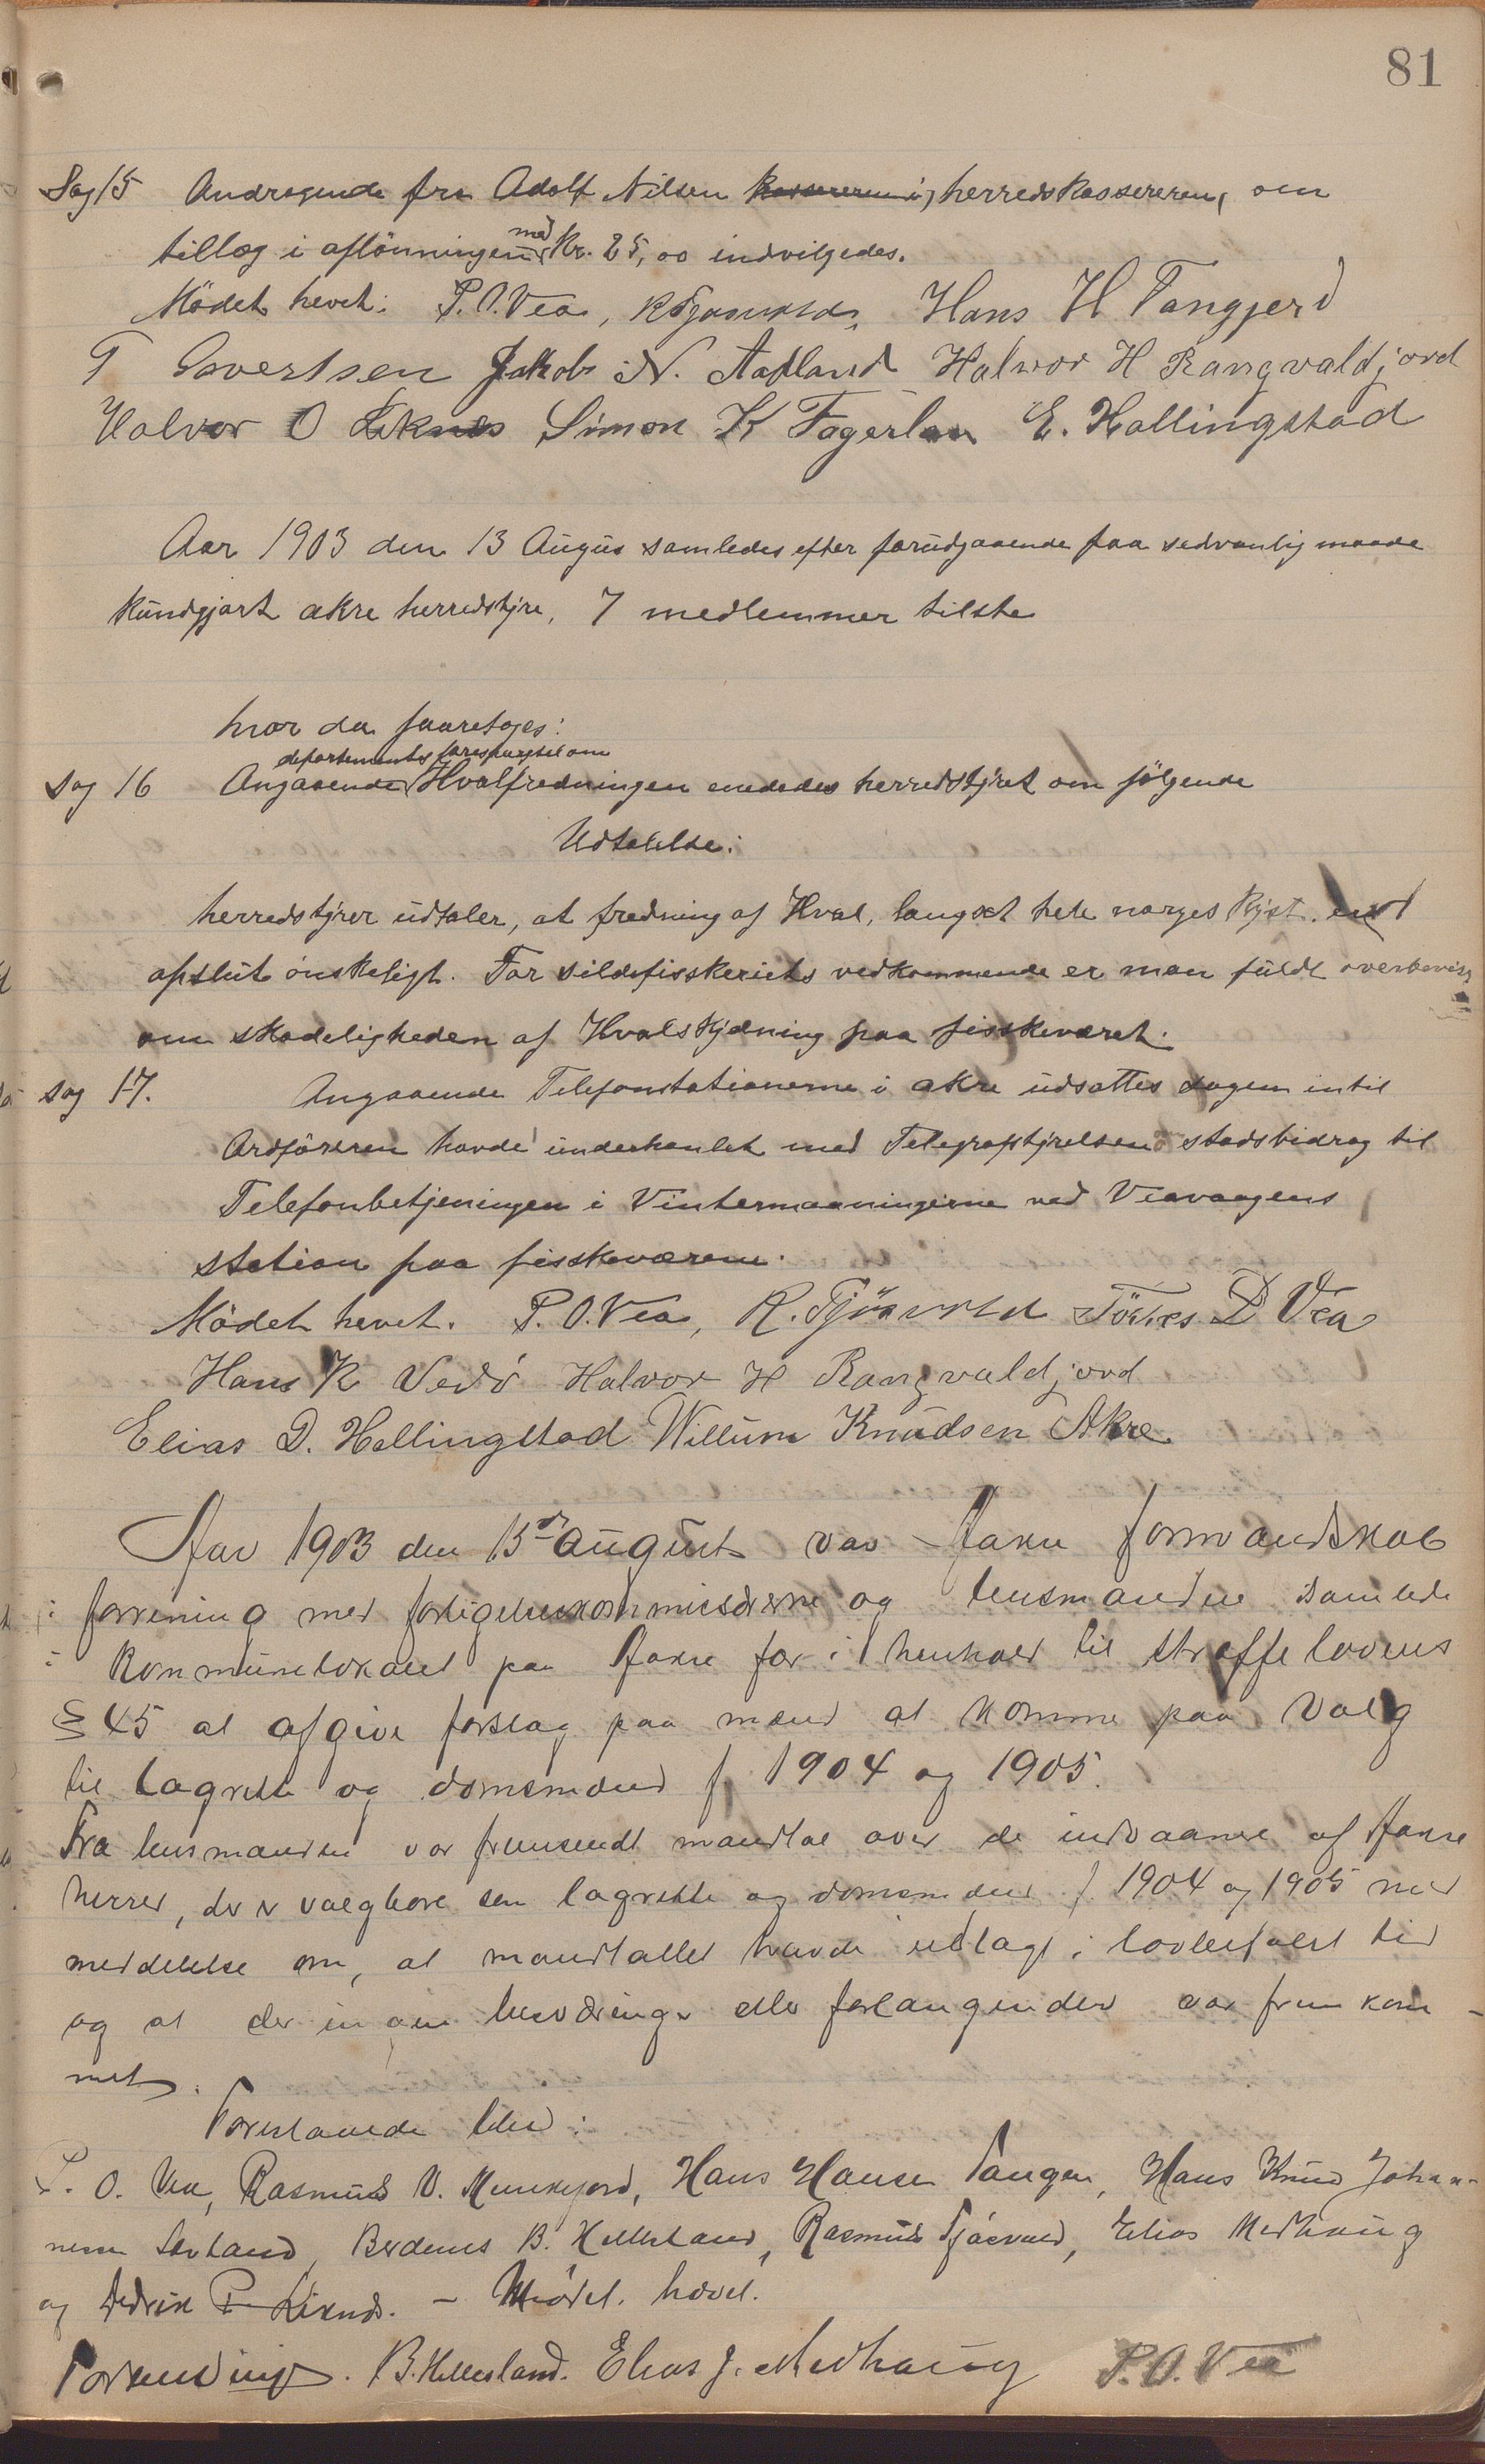 81
Sag 15 Andragende fra Adolf Nilsen kassereren i, herredskassereren, om
tillæg i aflönningen med Kr. 25,00 indvilgedes.
Mödet hevet: P.O. Vea, Hans H Tangjerd
T Govertsen Jakob N. Aadland Halvor H Rangvaldjord
Halvor O Liknes Simon K Fagerland E. Hallingstad
Aar 1903 den 13 Augus samledes efter forudgaaende paa sedvanlig maade
kundgjort akre herredstyre, 7 medlemmer tilste
hvor da foaretoges:
departementes forespørgsel om
sag 16 Angaaende Hvalfredningen enededes herredstyret om følgende
Udtalelse:
herredstyrer udtaler, at fredning af Hval, langset hele norges kyst. er
afslut önskeligt. For sildefisskeriets vedkommende er man fuldt overbevist
om skadeligheden af Hvalskydning paa fisskeværet.
sag 17. Angaaende Telefonstationerne i akre udsattes sagen intil
Ordföreren havde underhanlet med Telegrafstyrelsen stadsbidrag til
Telefonbetjeningen i Vintermaaningerne ved Veavaagens
station paa fisskeværene.
Mödet hevet. P. O. Vea, R. Tjösvold D Vea
Hans K Vedö Halvor H Rangvaldjord
Elias D. Hallingstad Willum Knudsen Akre
Aar 1903 den 13de august var Aakre formandskab
i forrening med forligelseskommissærerne og lensmanden samlede
i kommunelokalet paa Aakre for i henhold til straffelovens
§ 45 at afgive forslag paa mænd at komme paa valg
til lagrette og domsmænd f 1904 og 1905.
Fra lensmanden var fremsendt mandtal over de indvaanere af Aakre
herred, der er valgbare som lagrette og domsmænd f 1904 og 1905 med
meddelelse om, at mandtallet havde udlagt i lovbefalet tid
og at der ingen besværinger eller forlangender var frem kom-
met.
Forestaaende blev:
P. O. Vea, Rasmus V. Munkejord, Hans Hansen Tangen, Hans Knud Johan-
nesen Sævland, B. Hellesland, Rasmus Tjösvold, Elias Medhaug
og Didrik P Liknes. – Mödet hævet.
B. Hellesland. Elias J. Medhaug P. O. Vea